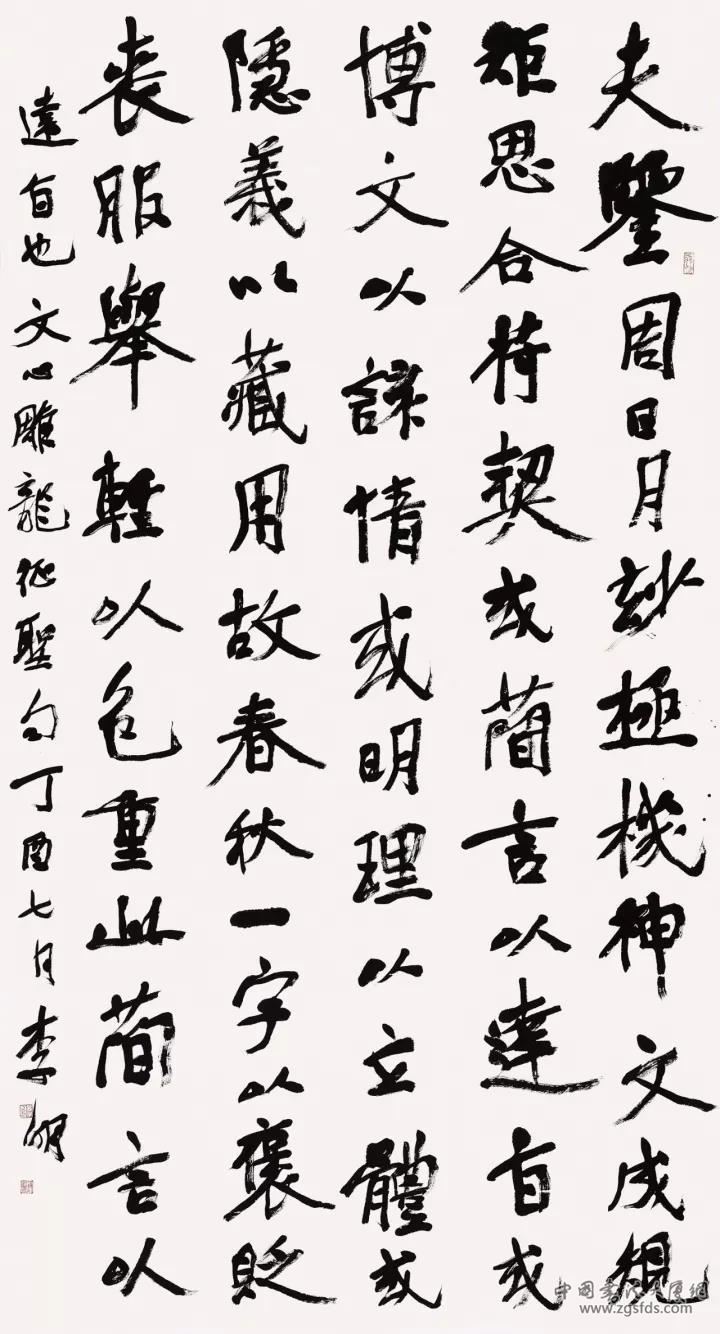 夫鑒周日月玅極機神文成規
矩思合符契或簡言以達旨或
博文以該情或明理以立體或
隱義以藏用故春秋一字以褒貶
喪服舉輕以包重此簡言以
達旨也文心雕龍征聖句丁酉七月李
中國書法大厦網
www.zgsfds.com